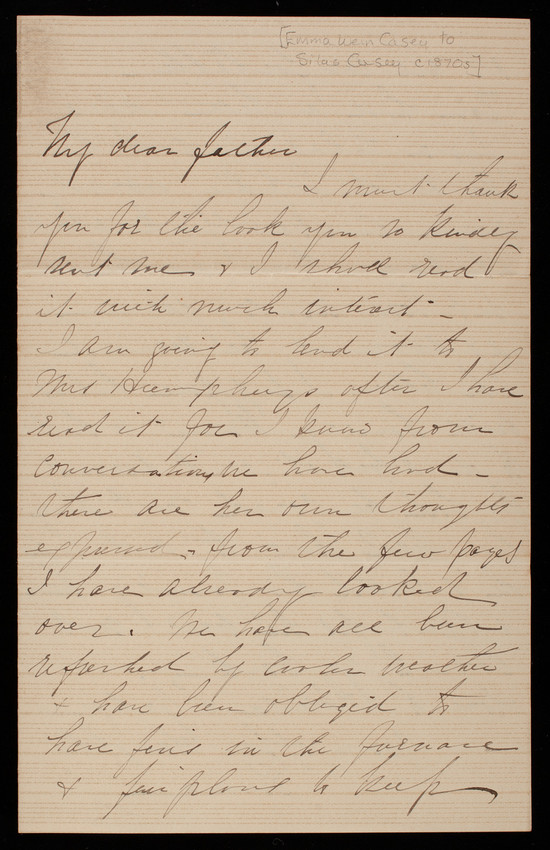 [Emma Weir Casey to
Silas Casey c1870s]
My dear father
I must thank
you for the book you so kindly
sent me & I shall read
it with much interest -
I am going to lend it to
Mrs Humphreys after I have
read it for I know from
conversations we have had -
there are her own thoughts
expressed - from the few pages
I have already looked
over. We have all been
refreshed by cooler weather
& have been obliged to
have fires in the furnace
& fireplace to keep